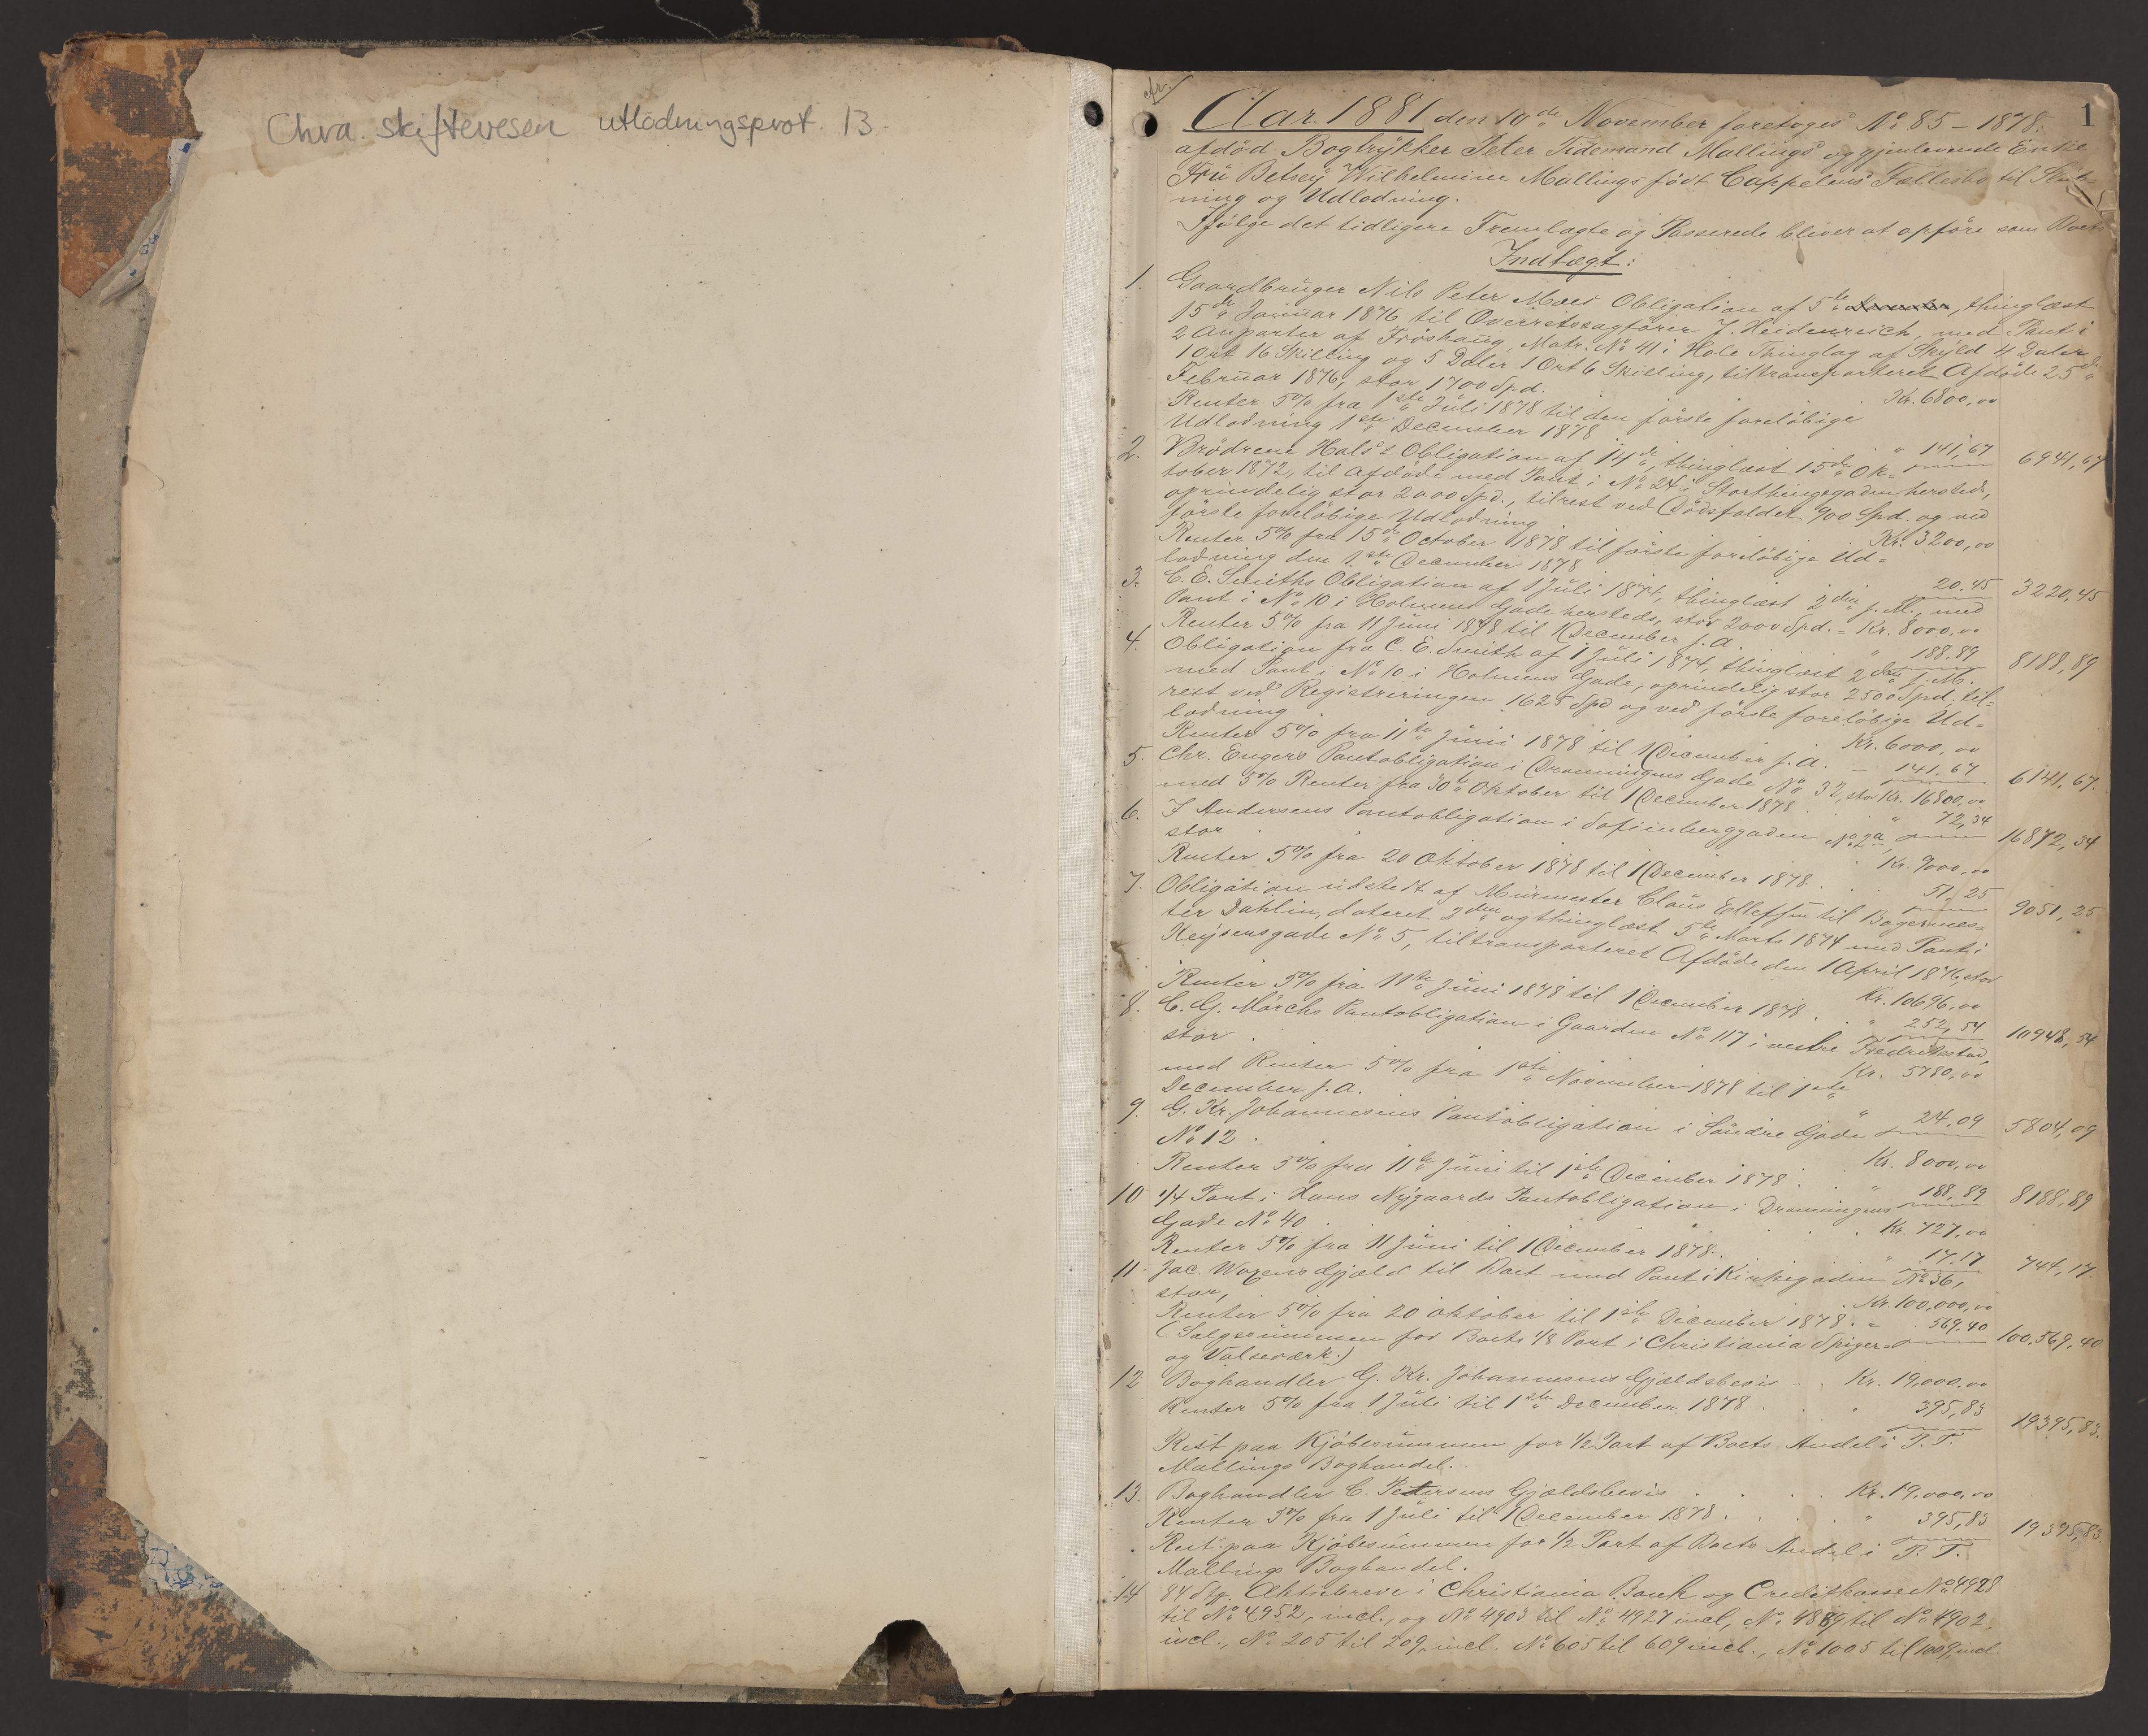 Chra. skiftevesen utlodningsprot. 13
cfr.
1
Aar 1881 den 19de November foretoges No 85 - 1878:
afdød Bogtrykker Peter Tidemand Mallings og gjenlevende Enke
Fru Betsey Wilhelmine Mallings født Cappelens Fællesbo til Slut-
ning og Udlodning.
Ifølge det tidligere Fremlagte og Passerede bliver at opføre som Boets
Indtægt:
1. Gaardbruger Nils Peter Moes Obligation af 5te, thinglæst
15de Januar 1876 til Overretssagfører J. Heidenreich, med Pant i
2 Anparter af Frøshaug, Matr. No 41 i Hole Thinglag af Skyld 4 Daler
1 Ort 16 Skilling og 5 Daler 1 Ort 6 Skilling, tiltransporteret Afdøde 25de
Februar 1876, stor 1700 Spd. Kr. 6800,00
Renter 5% fra 1ste Juli 1878 til den første foreløbige
Udlodning 1ste December 1878 " 141,67 6941,67
2. Brødrene Hals's Obligation af 14de, thinglæst 15de Ok-
tober 1872, til Afdøde med Pant i No 24 i Storthingsgaden hersteds,
oprindelig stor 2000 Spd., tilrest ved Dødsfaldet 900 Spd. og ved
første foreløbige Udlodning Kr. 3200,00
Renter 5% fra 15de October 1878 til første foreløbige Ud-
lodning den 1ste December 1878 20.45 3220,45
3. C. E. Smiths Obligation af 1 Juli 1874, thinglæst 2den s. M., med
Pant i No 10 i Holmens Gade hersteds, stor 2000 Spd. = Kr. 8000,00
Renter 5% fra 11 Juni 1878 til 1 December s. A. " 188.89 8188,89
4. Obligation fra C. E. Smith af 1 Juli 1874, thinglæst 2den s. M.
med Pant i No 10 i Holmens Gade, oprindelig stor 2500 Spd, til-
rest ved Registreringen 1625 Spd og ved første foreløbige Ud-
lodning Kr. 6000,00
Renter 5% fra 11te Juni 1878 til 1 December s. A. - 141.67 6141,67.
5. Chr. Engers Pantobligation i Dronningens Gade No 32, stor Kr. 16800,00
med 5% Renter fra 30te Oktober til 1 December 1878 " 72,34 16872,34
6. J Andersens Pantobligation i Sofienberggaden No 2a
stor Kr. 9000,00
Renter 5% fra 20 Oktober 1878 til 1 December 1878. 51,25 9051,25
7. Obligation udstedt af Murmester Claus Ellefsen til Bagermes-
ter Dahlin, dateret 2den og thinglæst 5te Marts 1874 med Pant i
Keysersgade No 5, tiltransporteret Afdøde den 1 April 1876, stor
Kr. 10696,00
Renter 5% fra 11te Juni 1878 til 1 December 1878 . " 252,54 10948,54
8. C. G. Mørchs Pantobligation i Gaarden No 117 i vestre Fredrikstad,
stor Kr. 5780,00
med Renter 5% fra 1ste November 1878 til 1ste
December s. A. " 24,09 5804,09
9. G. Kr. Johannesens Pantobligation i Søndre Gade
No 12 . Kr. 8000,00
Renter 5% fra 11te Juni til 1ste December 1878 . " 188,89 8188,89
10 1/4 Part i Hans Nygaards Pantobligation i Dronningens
Gade No 40 . Kr. 727,00
Renter 5% fra 11 Juni til 1 December 1878. " 17.17 744,17.
11 Jac. Woxens Gjæld til Boet med Pant i Kirkegaden No 36,
stor, Kr. 100,000,00
Renter 5% fra 20 Oktober til 1ste December 1878. " 569.40 100,569,40
(Salgssummen for Boets 1/8 Part i Christiania Spiger-
og Valseværk.)
12 Boghandler G. Kr. Johannesens Gjældsbevis . Kr. 19,000,00
Renter 5% fra 1 Juli til 1ste December 1878 . " 395,83 19395,83.
Rest paa Kjøbesummen for 1/2 Part af Boets Andel i P. T.
Mallings Boghandel.
13. Boghandler C. Petersens Gjældsbevis . . . Kr. 19,000,00
Renter 5% fra 1 Juli til 1 December 1878. . . " 395,83 19395,83.
Rest paa Kjøbesummen for 1/2 Part af Boets Andel i P. T.
Mallings Boghandel.
14 84 Stk. Aktiebreve i Christiania Bank og Creditkasse No 4928
til No 4952, incl., og No 4903 til No 4927 incl, No 4889 til No 4902,
incl., No 205 til 209 incl. No 605 til 609 incl., No 1005 til 1009, incl.